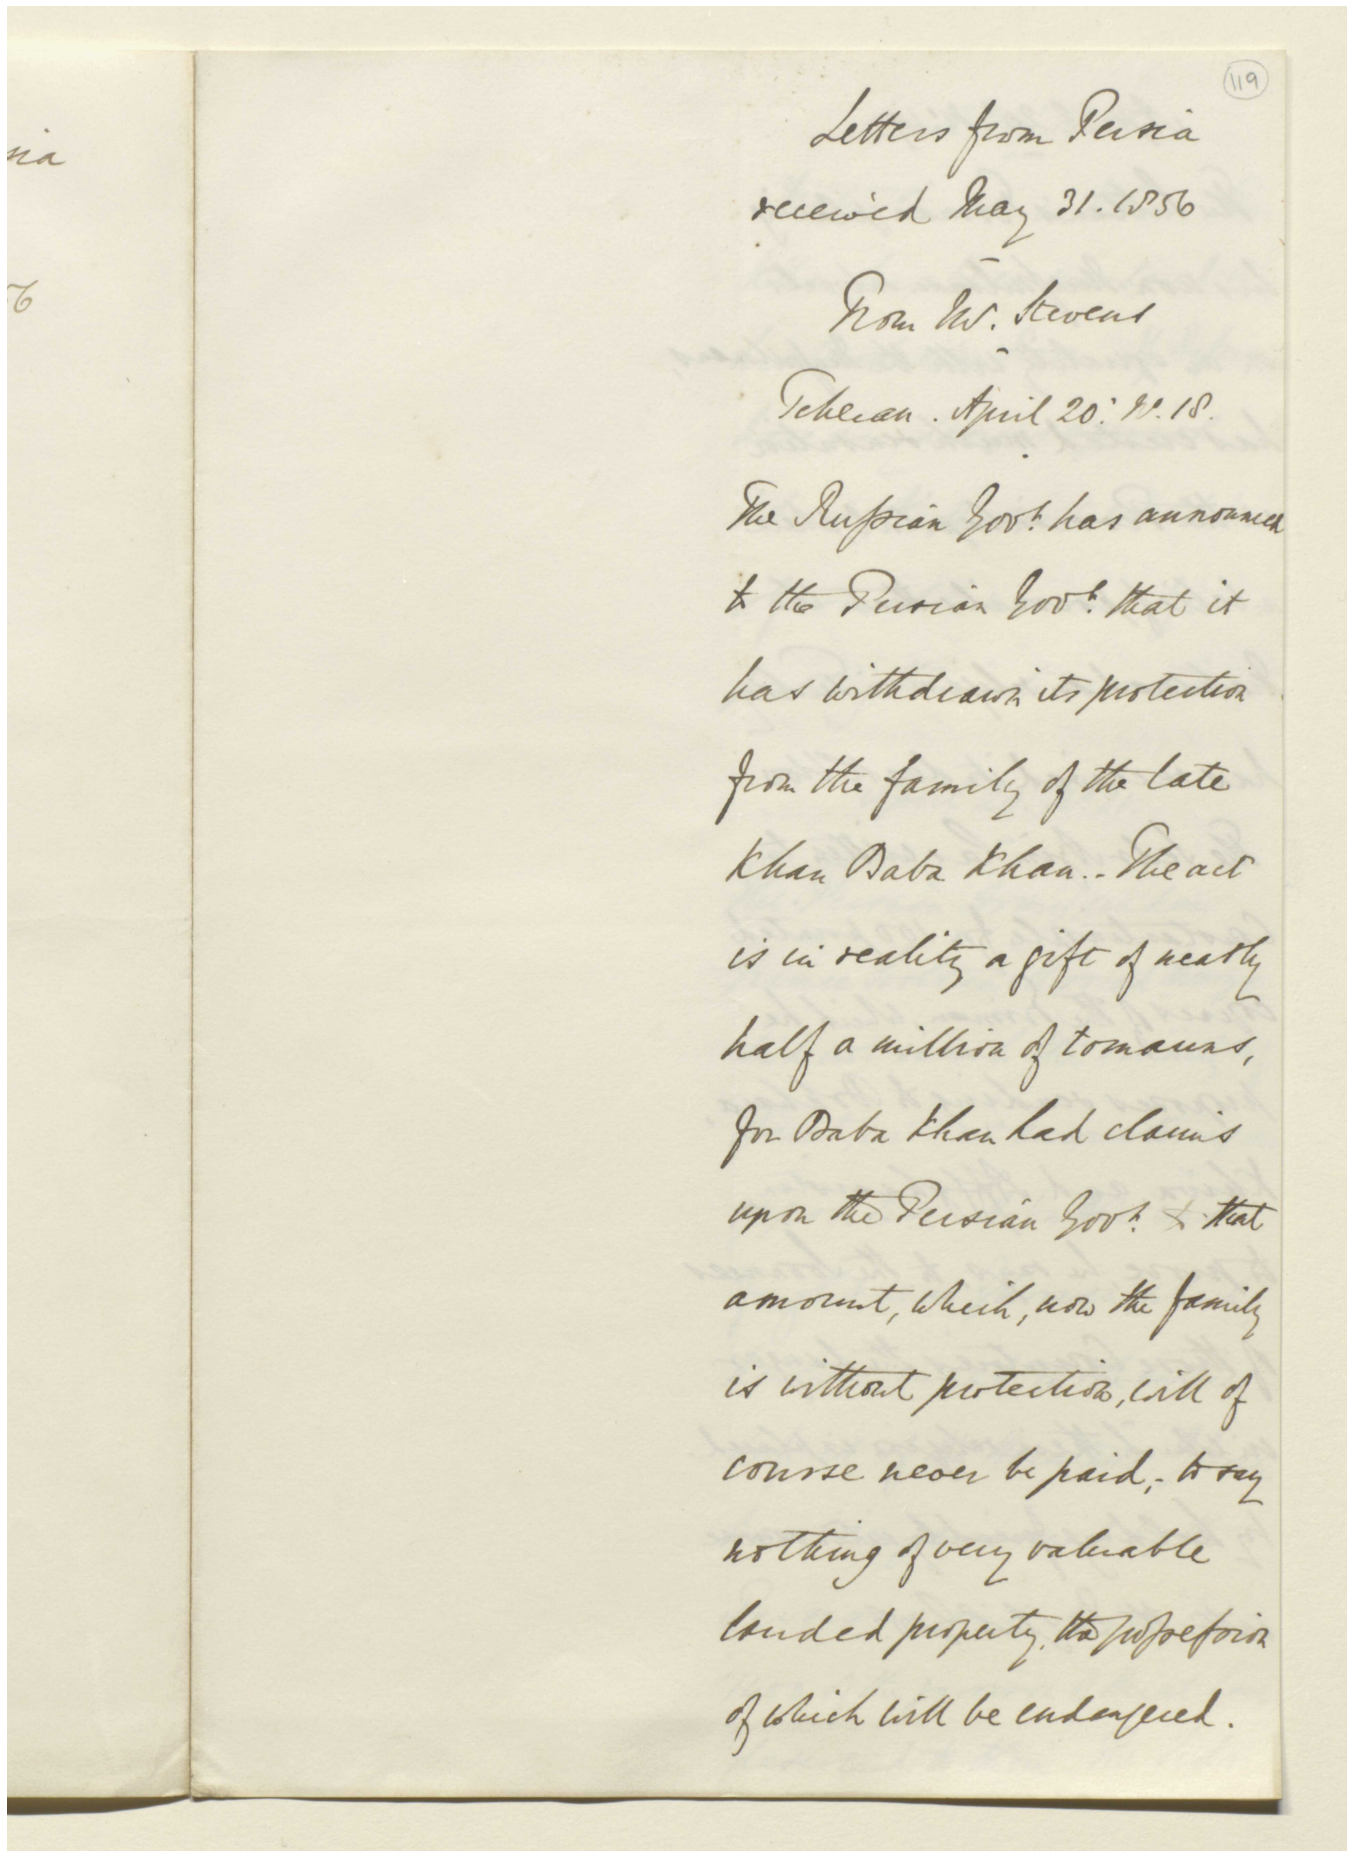 119
sia
Letters from Persia
received May 31. 1856
56
From Mr. Stevens
Teheran. April 20. No. 18.
The Russian Govt. has announced
to the Persian Govt. that it
has withdrawn its protection
from the family of the late
Khan Baba Khan.. The act
is in reality a gift of nearly
half a million of tomauns,
for Baba Khan had claims
upon the Persian Govt. to that
amount, which, now the family
is without protection, will of
course never be paid,- to say
nothing of very valuable
landed property, the possession
of which will be endangered.